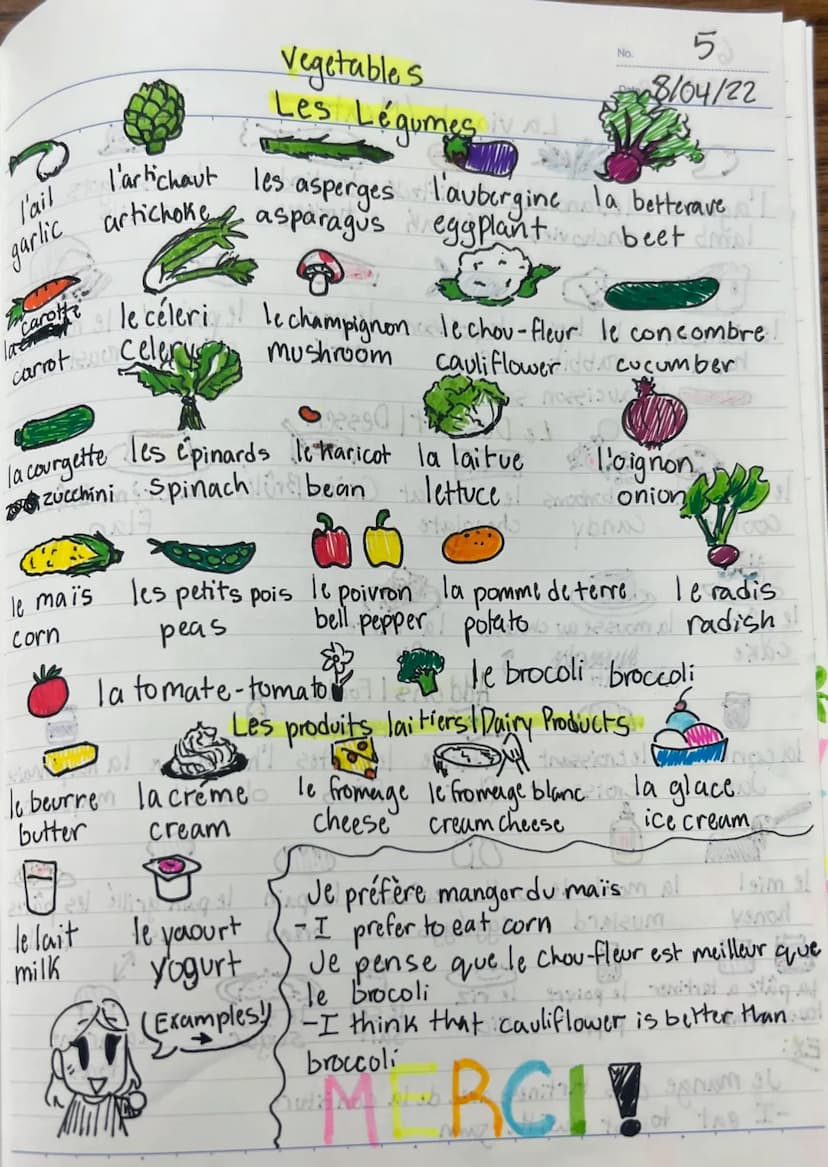 No. 5
8/04/22
Vegetables
Les Légumes
l'ail l'artichaut les asperges l'aubergine la betterave
garlic artichoke asparagus eggplant beet
la carotte le céleri le champignon le chou-fleur le concombre
carrot celery mushroom cauliflower cucumber
la courgette les épinards le haricot la laitue l'oignon
zucchini spinach bean lettuce onion
le maïs les petits pois le poivron la pomme de terre le radis
corn peas bell pepper potato radish
la tomate-tomato le brocoli broccoli
Les produits laitiers | Dairy Products
le beurre la crème le fromage le fromage blanc la glace
butter cream cheese cream cheese ice cream
le lait le yaourt
milk yogurt
(Examples!)
Je préfère mangor du maïs
-I prefer to eat corn
Je pense que le chou-fleur est meilleur que
le brocoli
-I think that cauliflower is better than
broccoli
MERCI!